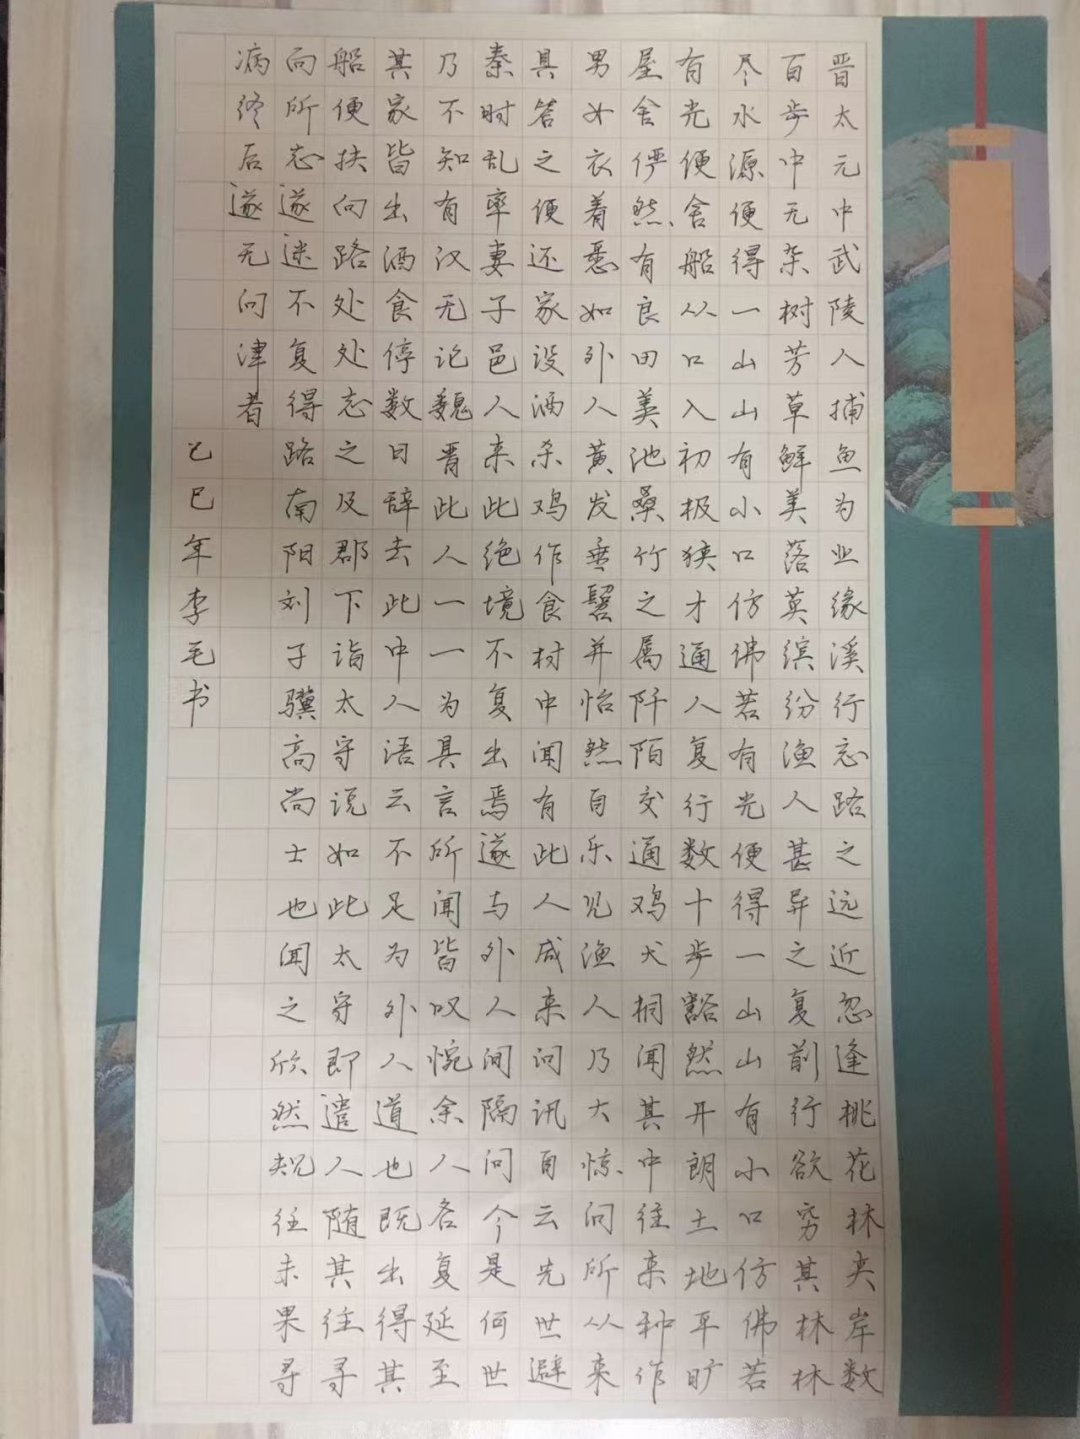 晋太元中武陵人捕鱼为业缘溪行忘路之远近忽逢桃花林夹岸数
百步中无杂树芳草鲜美落英缤纷渔人甚异之复前行欲穷其林林
尽水源便得一山山有小口仿佛若有光便得一山山有小口仿佛若
有光便舍船从口入初极狭才通人复行数十步豁然开朗土地平旷
屋舍俨然有良田美池桑竹之属阡陌交通鸡犬相闻其中往来种作
男女衣着悉如外人黄发垂髫并怡然自乐见渔人乃大惊问所从来
具答之便还家设酒杀鸡作食村中闻有此人咸来问讯自云先世避
秦时乱率妻子邑人来此绝境不复出焉遂与外人间隔问今是何世
乃不知有汉无论魏晋此人一一为具言所闻皆叹惋余人各复延至
其家皆出酒食停数日辞去此中人语云不足为外人道也既出得其
船便扶向路处处志之及郡下诣太守说如此太守即遣人随其往寻
向所志遂迷不复得路南阳刘子骥高尚士也闻之欣然规往未果寻
病终后遂无问津者
乙巳年李毛书